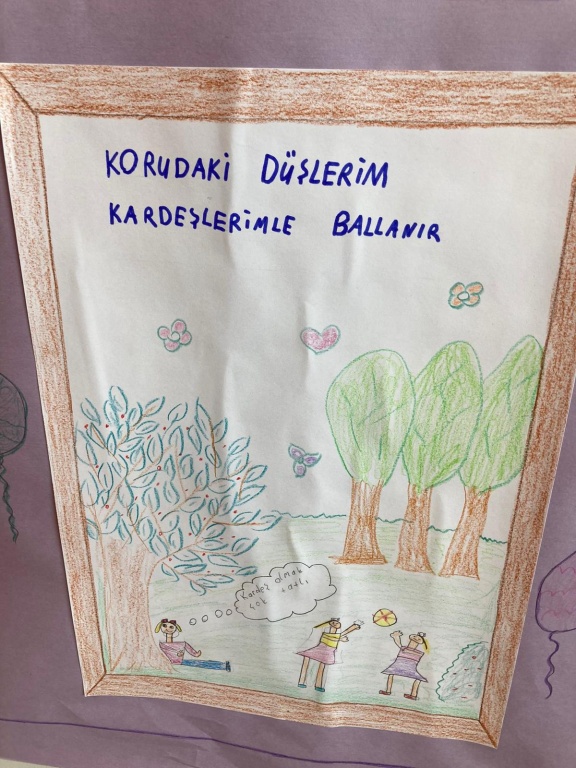 KORUDAKİ DÜŞLERİM
KARDEŞLERİMLE BALLANIR
Kardeş olmak
çok tatlı